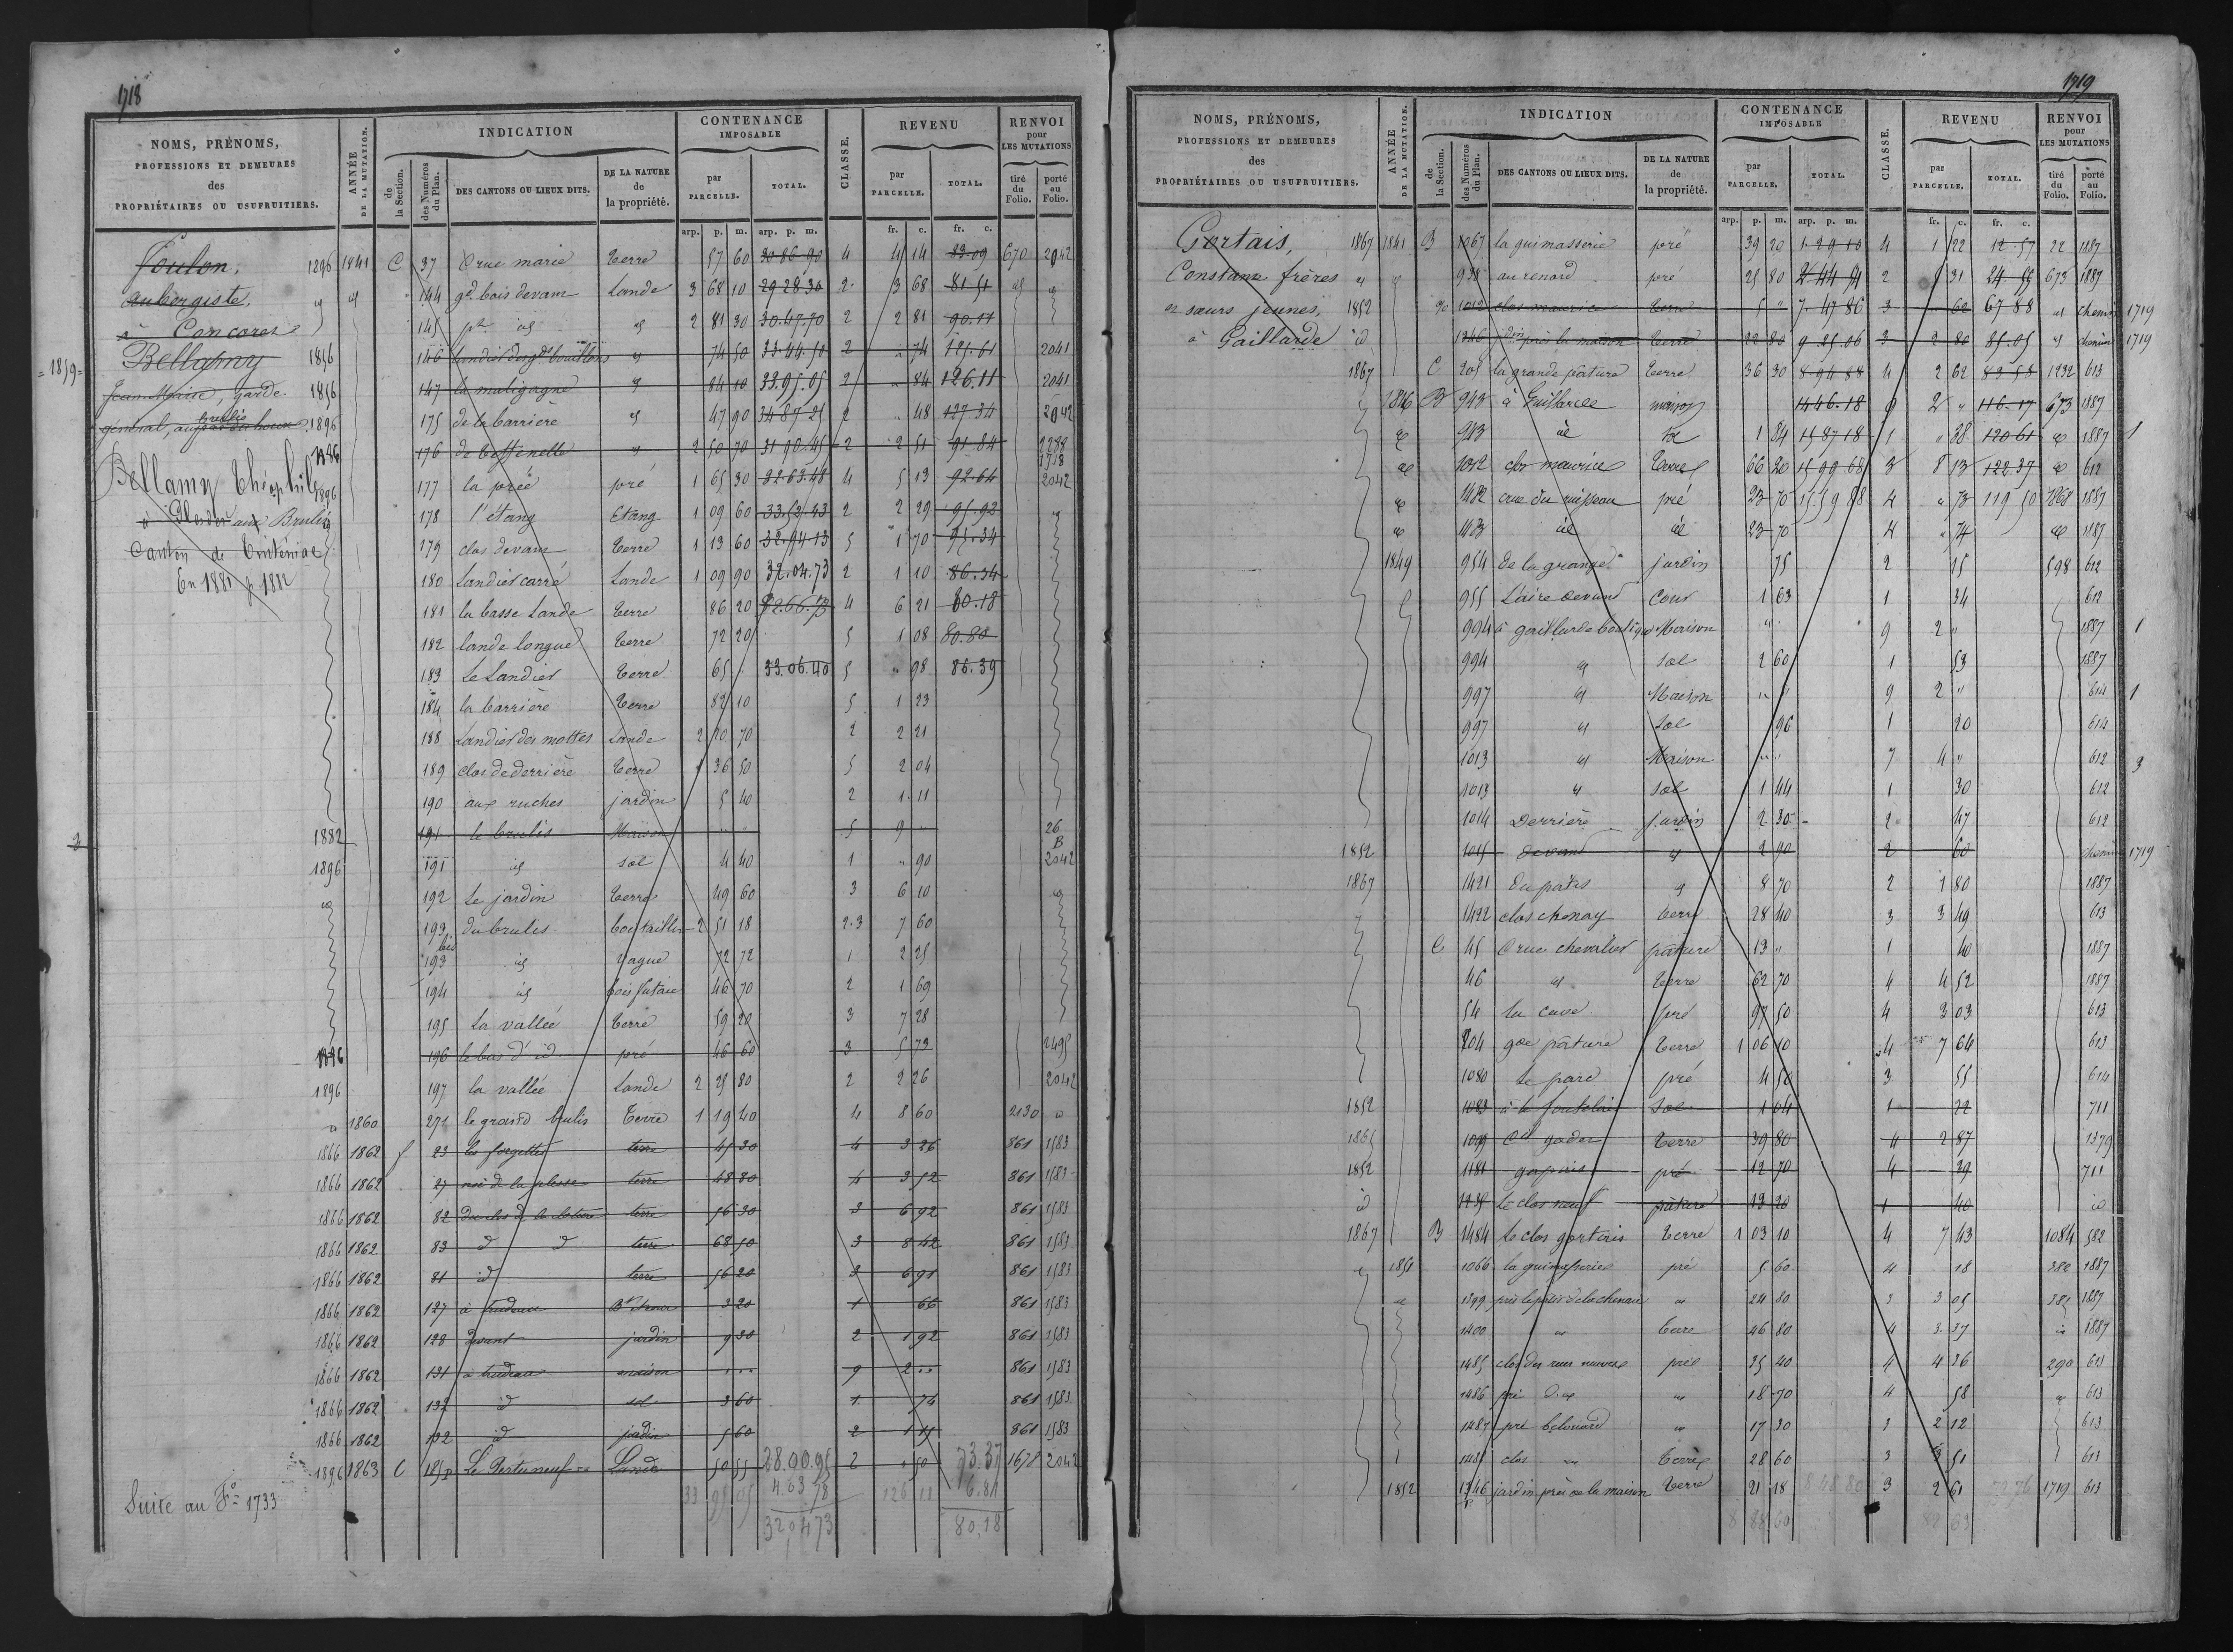 1718
NOMS, PRÉNOMS, PROFESSIONS ET DEMEURES des PROPRIÉTAIRES OU USUFRUITIERS.
ANNÉE DE LA MUTATION.
INDICATION
de la Section.
des Numéros du Plan.
DES CANTONS OU LIEUX DITS.
DE LA NATURE de la propriété.
CONTENANCE IMPOSABLE
par PARCELLE.
TOTAL.
CLASSE.
REVENU
par PARCELLE.
TOTAL.
RENVOI pour LES MUTATIONS
tiré du Folio.
porté au Folio.
arp. p. m. arp. p. m. fr. c. fr. c.
Foulon,
aubergiste,
à Cancores
=1859=
Bellamy
Jean Marie, garde
général, aux brulis
Bellamy Théophile
à Plesder aux Brulis
Canton de Tinténiac
En 1881 p 1882
1896 1841 C 37 Crue marie terre 57 60 30 86 90 4 4 14 83.09 670 2042
id id 144 gd bois devant Lande 3 68 10 29 28 30 2 3 68 81 51 id id
145 pt id id 2 81 30 30.47.70 2 2 81 90.11
1856 146 landier des gds bouillons id 74 50 33.44.50 2 " 74 125.61 2041
1856 147 la maligagne id 84 10 33.95.05 2 " 84 126.11 2041
1896 175 de la barrière id 47 90 34 87 25 2 " 48 127 34 2042
1886 176 id 2 50 70 31 90.45 2 2 51 91.84 2288 1718
1896 177 la prée pré 1 65 30 32 63.48 4 5 13 92.64 2042
178 l'étang Etang 1 09 60 33.53.43 2 2 29 95.92 id
179 clos devant terre 1 13 60 32.94.13 5 1 70 95.34
180 Landier carré Lande 1 09 90 32.04.73 2 1 10 86.34
181 la basse Lande terre 86 20 4 6 21 80.18
182 lande longue terre 72 20 5 1 08 80.80
183 Le Landier terre 65 " 33.06.40 5 " 98 86.39
184 la barrière terre 82 10 5 1 23
188 Landier des mottes Lande 2 20 70 2 2 21
189 clos de derrière terre 1 36 50 5 2 04
190 aux ruches jardin 5 40 2 1 11
3 1882 191 le brulis Maison " " 5 9 " 26 B
1896 191 id sol 4 40 1 " 90 2042
id 192 Le jardin terre 49 60 3 6 10 id
193 du brulis bois taillis 2 51 18 2.3 7 60
193 bis id vague 72 72 1 2 25
194 id bois futaie 46 70 2 1 69
195 La vallée terre 59 20 3 7 28
196 le bas d' id pré 46 60 3 5 73 2495
1896 197 la vallée Lande 2 25 80 2 2 26 2042
id 1860 271 le grand brulis Terre 1 19 40 4 8 60 2130 id
1866 1862 f 23 les forgettes terre 45 30 4 3 26 861 1583
1866 1862 27 terre 48 80 4 3 52 861 1583
1866 1862 82 du clos de la cloture terre 56 30 3 6 92 861 1583
1866 1862 83 d d terre 68 50 3 8 42 861 1583
1866 1862 81 id terre 56 20 3 6 91 861 1583
1866 1862 127 à trudeau 3 20 1 66 861 1583
1866 1862 128 devant jardin 9 30 2 1 92 861 1583
1866 1862 131 à trudeau maison " " " 9 2 " " 861 1583
1866 1862 132 d sol 3 60 1 74 861 1583
1866 1862 132 d jardin 5 60 2 1 15 861 1583
1896 1863 C 185p Le Pertuneuf Lande 50 55 28.00.95 2 " 50 73.37 1678 2042
33 95 05 4.03 78 126 11 6.81
32 04 73 80.18
Suite au F° 1733
1719
NOMS, PRÉNOMS, PROFESSIONS ET DEMEURES des PROPRIÉTAIRES OU USUFRUITIERS.
ANNÉE DE LA MUTATION.
INDICATION
de la Section.
des Numéros du Plan.
DES CANTONS OU LIEUX DITS.
DE LA NATURE de la propriété.
CONTENANCE IMPOSABLE
par PARCELLE.
TOTAL.
CLASSE.
REVENU
par PARCELLE.
TOTAL.
RENVOI pour LES MUTATIONS
tiré du Folio.
porté au Folio.
arp. p. m. arp. p. m. fr. c. fr. c.
Gortais,
Constance frères
et sœurs jeunes,
à Gaillarde
1867 1841 B 1067 la guimasserie pré 39 20 1 29 10 4 1 22 12.57 22 1887
id id 938 au renard pré 25 80 2 44 94 2 5 31 24.55 673 1887
1852 1012 clos maurice terre 5 " 7.47 86 3 " 62 67 88 id chemin 1719
id 1346 jdin près la maison terre 22 80 9.25.06 3 2 80 85.05 id chemin 1719
1867 C 205 la grande pâture terre 36 30 8.94 88 4 2 62 83 58 1232 613
1846 B 943 à Guillarde maison 14 46.18 9 2 " 116.17 673 1887
id 943 id sol 1 84 15 87 18 1 " 38 120 61 id 1887 1
id 1012 clos maurice terre 66 20 15 99 68 3 8 13 122.37 id 612
id 1482 crue du ruisseau pré 23 70 15.59 88 4 " 73 119 50 1868 1887
id 1483 id id 23 70 4 " 74 id 1887
1849 954 de la grange jardin 75 2 15 598 612
955 L'aire devant Cour 1 63 1 34 612
994 à gaillarde boutique Maison " 9 2 " 1887 1
994 id sol 2 60 1 53 1887
997 id Maison " " 9 2 " 614 1
997 id sol 96 1 20 614
1013 id Maison " " 7 4 " 612 3
1013 id sol 1 44 1 30 612
1014 Derrière jardin 2 30 2 47 612
1852 1015 devant id 2 90 2 60 chemin 1719
1867 1421 du pâtis id 8 70 2 1 80 1887
1492 clos chenay terre 28 40 3 3 49 613
C 45 Crue chevalier pâture 13 " 1 40 1887
46 id terre 62 70 4 4 52 1887
54 la cave pré 97 50 4 3 03 613
204 gde pâture terre 1 06 10 4 7 64 613
1080 Le parc pré 4 50 3 55 614
1852 1083 sol 1 04 1 22 711
1865 1099 terre 39 80 4 2 87 1379
1852 1181 pré 12 70 4 39 711
id 1235 Le clos neuf pâture 13 20 1 40 id
1867 B 1484 Le clos gortais terre 1 03 10 4 7 43 1084 582
id 1851 1066 la guimasserie pré 5 60 4 18 382 1887
id 1399 près le pâtis de la chenaie id 24 80 3 3 05 385 1887
1400 id terre 46 80 4 3.37 id 1887
1485 clos des rues neuves pré 35 40 4 4 36 290 613
1486 pré d. id id 18 70 4 58 id 613
1487 pré belouard id 17 30 3 2 12 613
1488 clos id Terre 28 60 3 3 51 613
1852 1346 p jardin près de la maison terre 21 18 8 48 80 3 2 61 1719 613
8 88 60